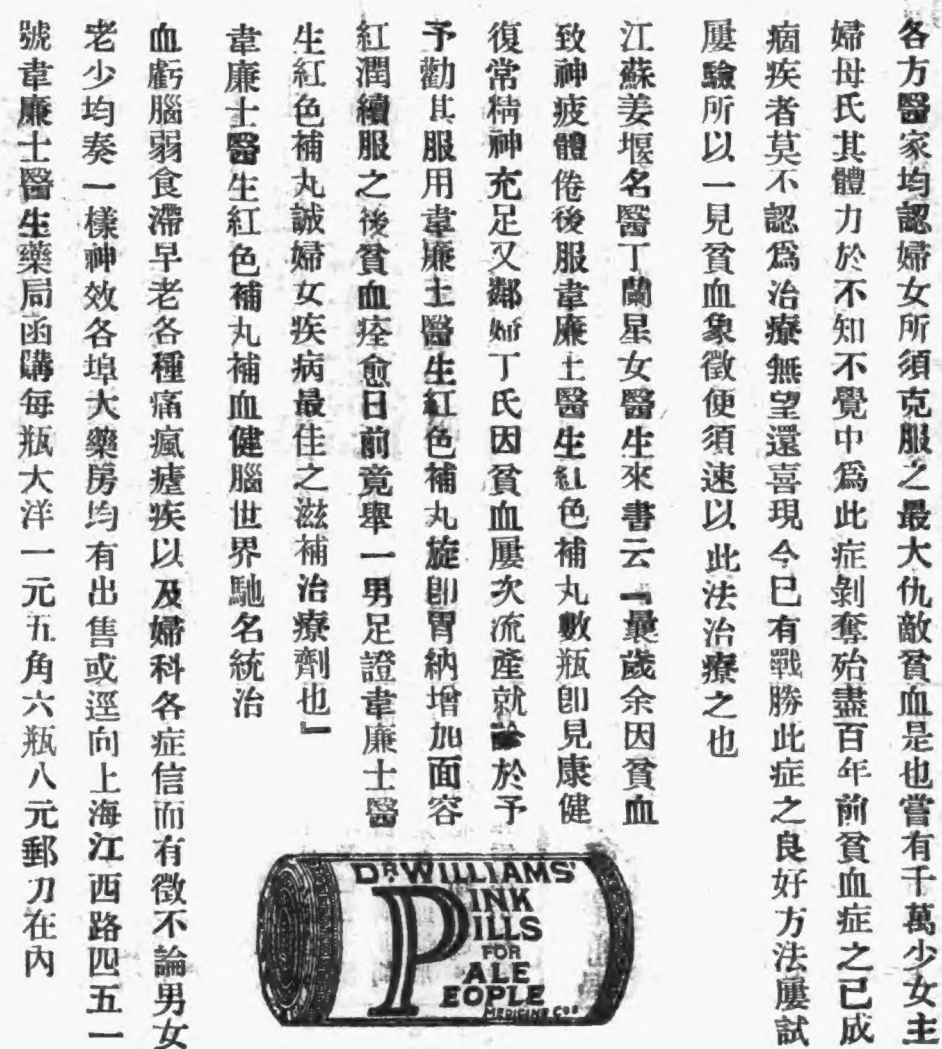 各方醫家均認婦女所須克服之最大仇敵貧血是也嘗有千萬少女主
婦母氏其體力於不知不覺中爲此症剝奪殆盡百年前貧血症之已成
痼疾者莫不認爲治療無望還喜現今已有戰勝此症之良好方法屢試
屢驗所以一見貧血象徵便須速以此法治療之也
江蘇姜堰名醫丁蘭星女醫生來書云『曩歲余因貧血
致神疲體倦後服韋廉士醫生紅色補丸數瓶卽見康健
復常精神充足又鄰婦丁氏因貧血屢次流產就診於予
予勸其服用韋廉士醫生紅色補丸旋卽胃納增加面容
紅潤續服之後貧血痊愈日前竟舉一男足證韋廉士醫
生紅色補丸誠婦女疾病最佳之滋補治療劑也』
韋廉士醫生紅色補丸補血健腦世界馳名統治
血虧腦弱食滯早老各種痛瘋瘧疾以及婦科各症信而有徵不論男女
老少均奏一樣神效各埠大藥房均有出售或逕向上海江西路四五一
號韋廉士醫生藥局函購每瓶大洋一元五角六瓶八元郵力在內
DR WILLIAMS'
PINK
PILLS
FOR
PALE
PEOPLE
MEDICINE Co